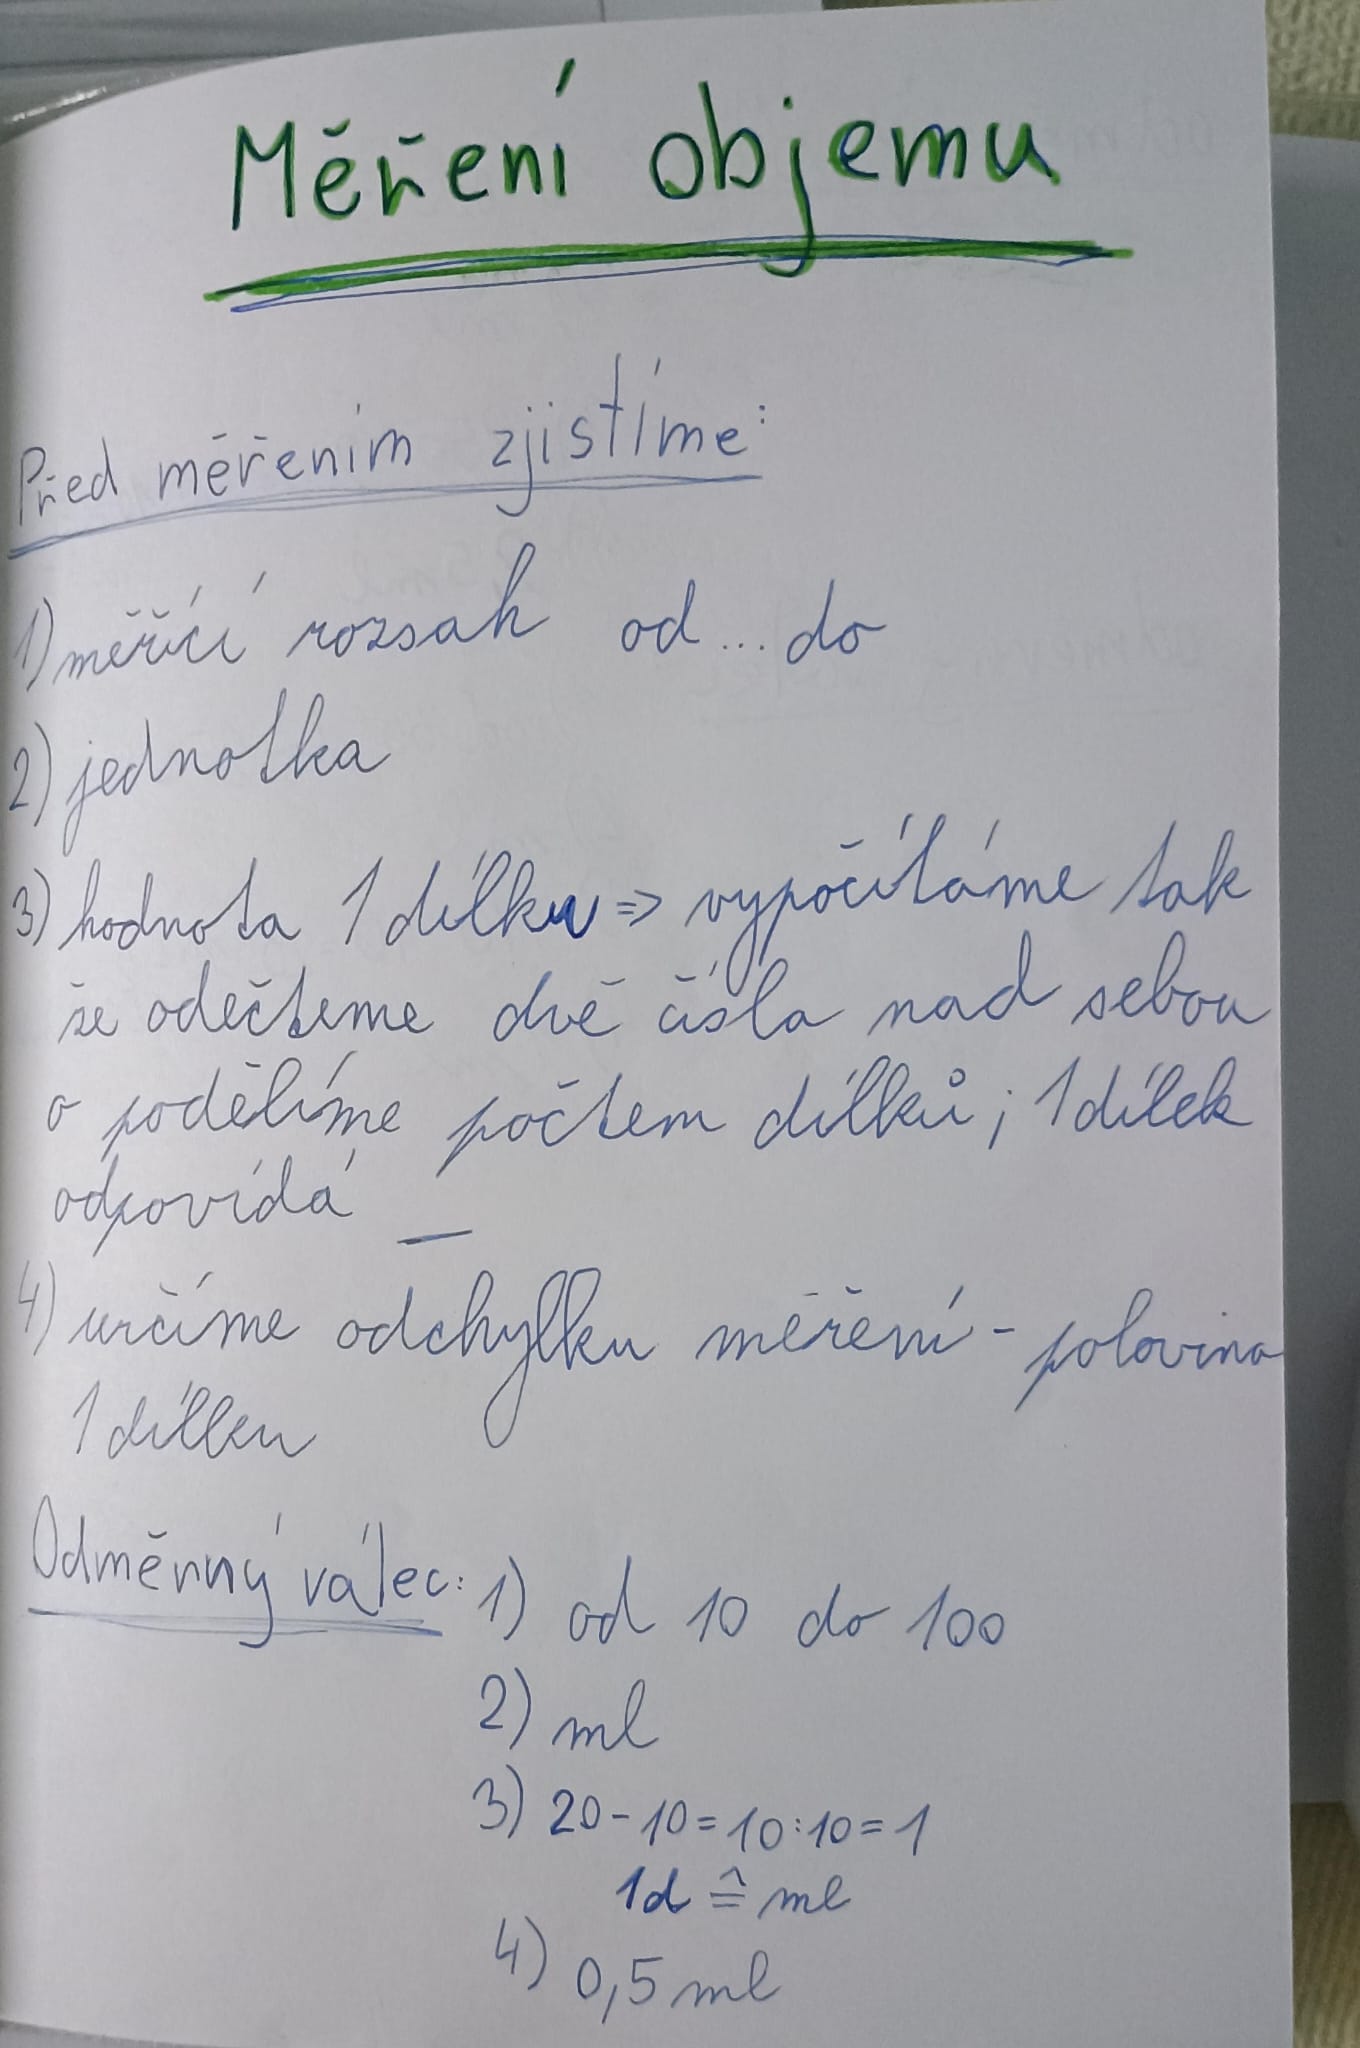 Měření objemu
Před měřením zjistíme:
1) měřící rozsah od...do
2) jednotka
3) hodnota 1 dílku => vypočítáme tak
že odečteme dvě čísla nad sebou
a podělíme počtem dílků; 1 dílek
odpovídá _
4) určíme odchylku měření - polovina
1 dílku
Odměrný válec: 1) od 10 do 100
2) ml
3) 20-10=10:10=1
1d ≙ ml
4) 0,5 ml